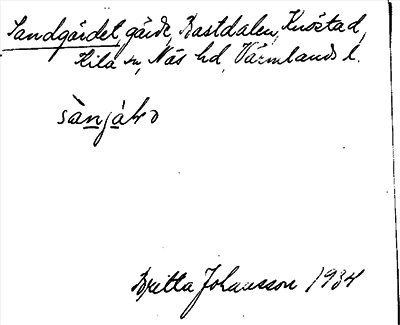 Sandgärdet, gärde, Rastdalen, Knöstad,
Kila sn, Näs hd, Värmlands l.
Britta Johansson 1934